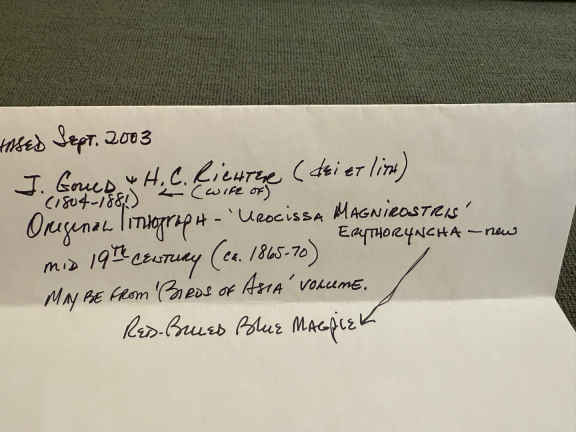 HASED SEPT. 2003
J. GOULD & H.C. RICHTER (del ET lITH)
(1804-1881) (WIFE OF)
ORIGINAL lITHOGRAPH - 'UROCISSA MAGNIROSTRIS'
ERYTHORYNCHA - new
MID 19TH CENTURY (CA. 1865-70)
MAY BE FROM 'BIRDS OF ASIA' VOLUME.
RED-BILLED BLUE MAGPIE